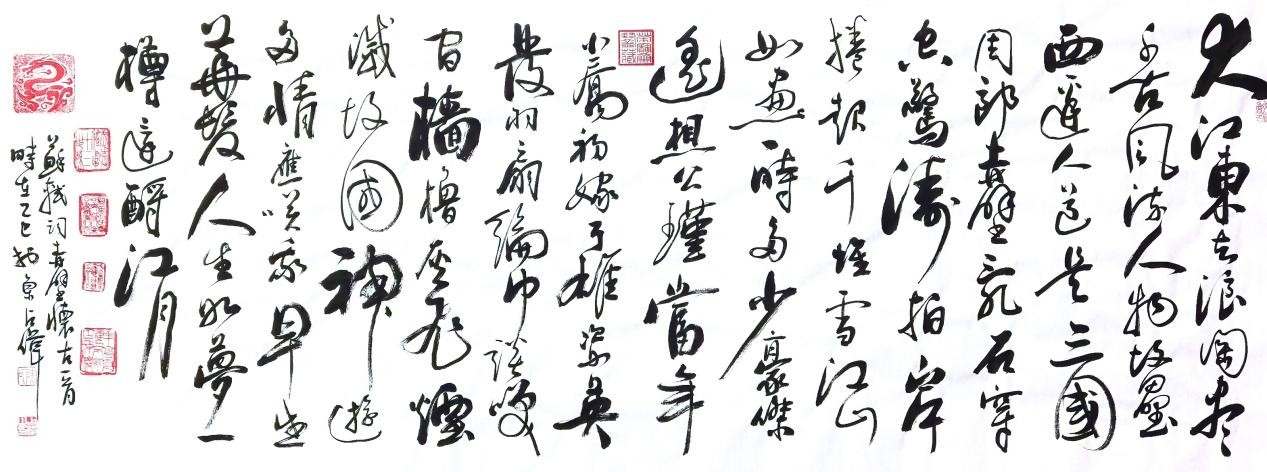 大江東去浪淘盡
千古風流人物故壘
西邊人道是三國
周郎赤壁乱石穿
空驚濤拍岸
捲起千堆雪江山
如畫一時多少豪傑
遙想公瑾當年
小喬初嫁了雄姿英
發羽扇綸巾談笑
間檣櫓灰飛煙
滅故國神遊
多情應笑我早生
華髮人生如夢一
樽還酹江月
蘇軾詞赤壁懷古一首
時在乙巳